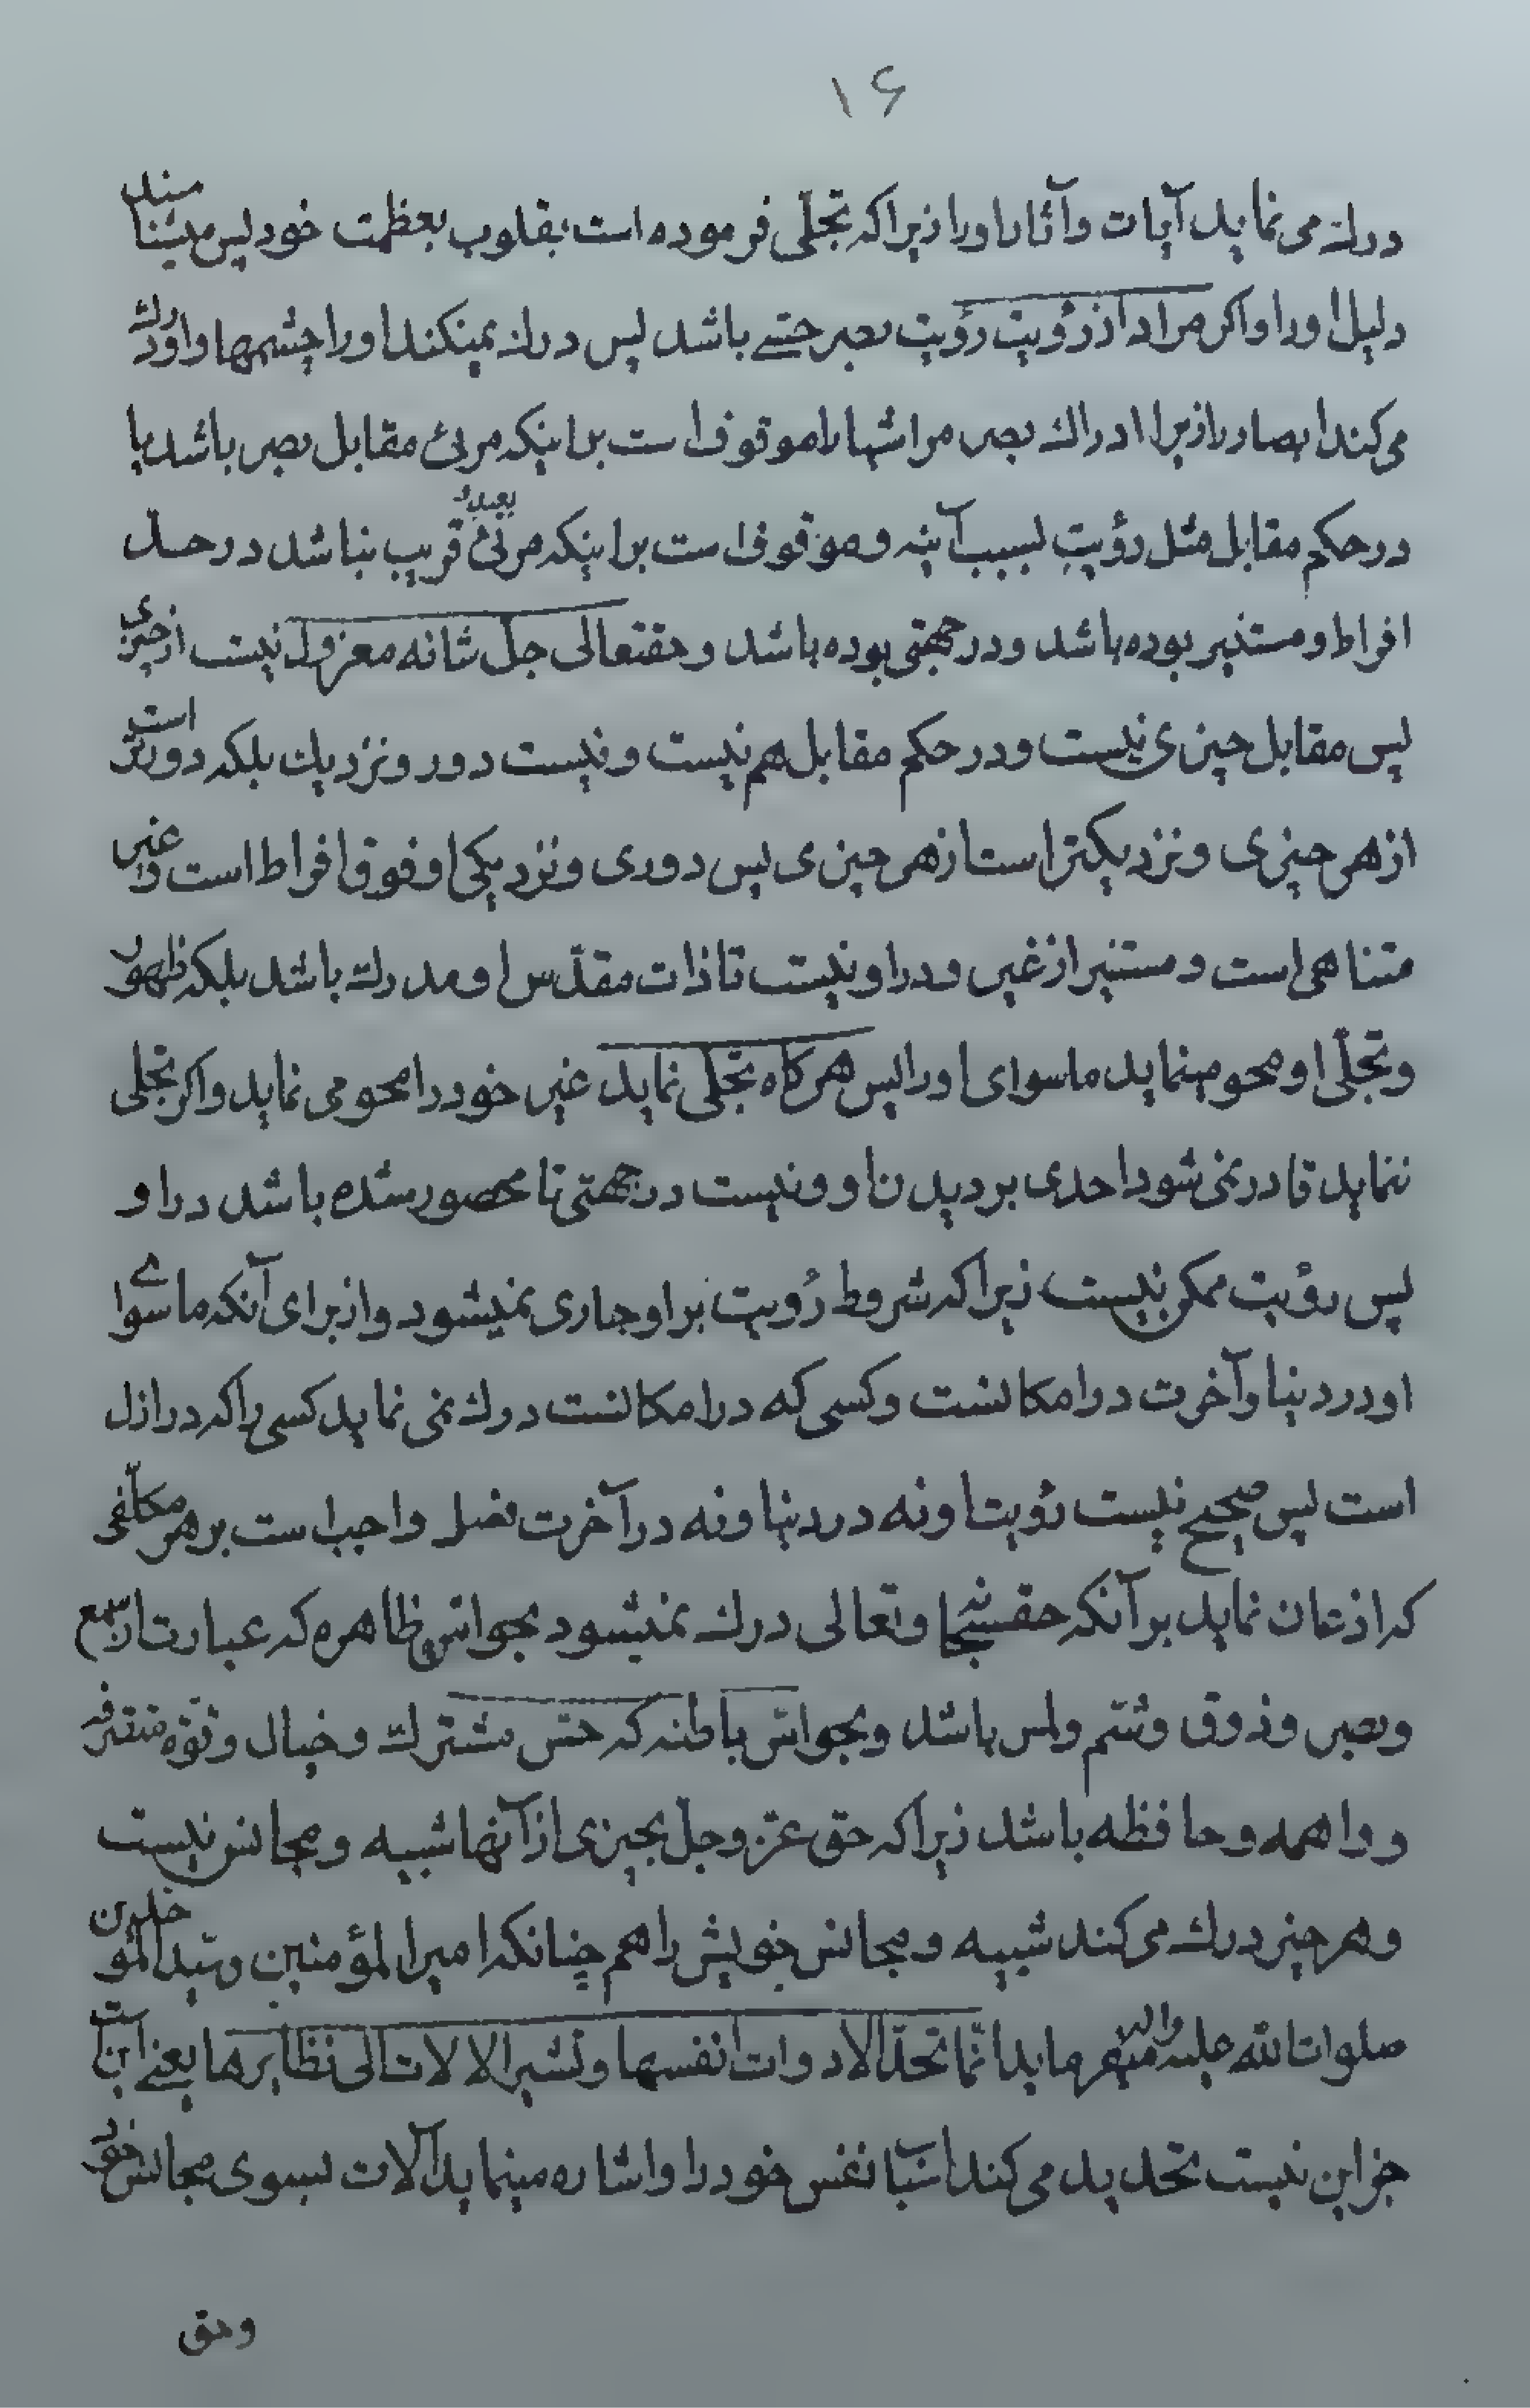 ۱۶
درك می نماید آیات و آثار او را زیرا که تجلّی فرموده است بقلوب بعظمت خود پس میشناسند
دلیل او را و اکر مراد از رؤیت رؤیت ببصر حسّے باشد پس درك نمیکند او را چشمها و او درك
می کند ابصار را زیرا ادراك بصر مر اشیا را موقوف است بر اینکه مرئی مقابل بصر باشد یا
در حکم مقابل مثل رؤیت بسبب آینه و موقوف است بر اینکه مرئی بعید و قریب نباشد در حد
افراط و مستنیر بوده باشد و در جهتی بوده باشد و حقتعالی جل شانه معزول نیست از چیزی
پس مقابل چیزی نیست و در حکم مقابل هم نیست و نیست دور و نزدیك بلکه دورتر است
از هر چیزی و نزدیکتر است از هر چیزی پس دوری و نزدیکی او فوق افراط است و غیر
متناهی است و مستنیر از غیر و در او نیست تا ذات مقدّس او مدرك باشد بلکه ظهور
و تجلّی او محو مینماید ماسوای او را پس هرکاه تجلّی نماید غیر خود را محو می نماید و اکر تجلی
ننماید قادر نمی شود احدی بر دیدن او و نیست در جهتی تا محصور شده باشد در او
پس رؤیت ممکن نیست زیرا که شروط رؤیت بر او جاری نمیشود و از برای آنکه ماسوای
او در دنیا و آخرت در امکانست و کسی که در امکانست درك نمی نماید کسی را که در ازل
است پس صحیح نیست رؤیت او نه در دنیا و نه در آخرت فصل واجب است بر هر مکلّفی
که اذعان نماید بر آنکه حقسبحانه و تعالی درك نمیشود بحواس ظاهره که عبارت از سمع
و بصر و ذوق و شم و لمس باشد و بحواس باطنه که حس مشترك و خیال و قوّه متصرفه
و واهمه و حافظه باشد زیرا که حق عز و جل بچیزی از آنها شبیه و مجانس نیست
و هر چیز درك می کند شبیه و مجانس خویش را هم چنانکه امیر المؤمنین و سید الموحدین
صلوات الله علیه و اله میفرماید انّما تحدّ الادوات انفسها و تشیر الالات الی نظایرها یعنے این است
جز این نیست تحدید می کند اسباب نفس خود را و اشاره مینماید آلات بسوی مجانس خود
و حق